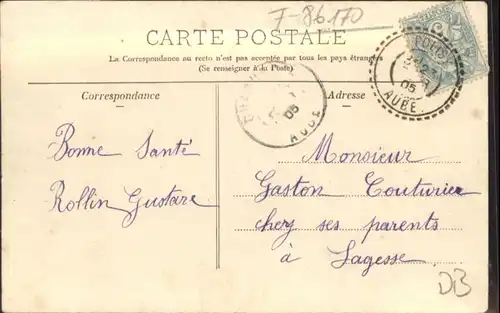 7-86170
CARTE POSTALE
La Correspondance au recto n'est pas acceptée par tous les pays étrangers
(Se renseigner à la Poste)
Correspondance
Adresse
05
AUBE
05
AUBE
Bonne Santé
Rollin Gustave
Monsieur
Gaston Couturier
chez ses parents
à Lagesse
DB